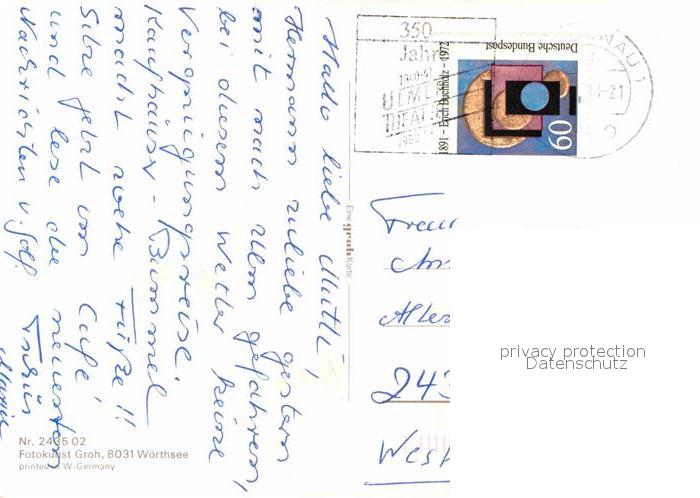 Hallo liebe Mutti,
Hermann zuliebe gestern
mit nach Ulm gefahren,
bei diesem Wetter keine
Vergnügungsreise.
Kaufhäuser-Bummel
macht müde Füße!!
Sitze jetzt im Café
und lese die neuesten
Nachrichten v. Golf.
Tschüs
Eine groh Karte
Nr. 2435 02
Fotokunst Groh, 8031 Wörthsee
printed in W-Germany
350
Jahre
ULMER
Deutsche Bundespost
1891 - Erich Buchholz - 1972
60
NAU 1
-21
Frau
243
West
privacy protection
Datenschutz